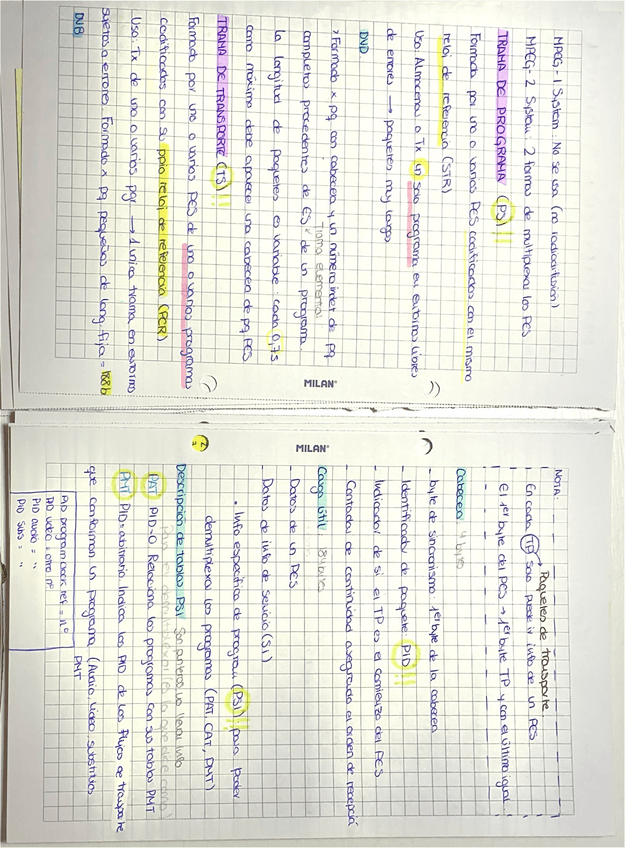 MPEG-1 System: No se usa (no radiodifusión)
MPEG-2 System: 2 formas de multiplexar los PES
TRAMA DE PROGRAMA (PS)!!
Formada por uno o varios PES codificados con el mismo
reloj de referencia (STR)
Uso: Almacenam o Tx un solo programa en entornos libres
de errores → paquetes muy largos
DVD
> Formado x pq con cabecera y un número indet de pq
completos procedentes de ES de un programa
Trama elemental
La longitud de paquetes es variable: cada 0,7s
como máximo debe aparecer una cabecera de pq PES
TRAMA DE TRANSPORTE (TS)!!
Formada por uno o varios PES de uno o varios programas
codificados con su ppio reloj de referencia (PCR)
Uso: Tx de uno o varios pgr → 1 unica trama, en entornos
sujetos a errores. Formado x pq pequeños de long. fija = 188b
DVB
MILAN®
MILAN®
NOTA:
Paquetes de transporte
En cada TP solo puede ir info de un PES
El 1er byte del PES → 1er byte TP y con el último igual.
Cabecera 4 bytes
- byte de sincronismo: 1er byte de la cabecera
- Identificador de paquete PID!!
- Indicador de si el TP es el comienzo del PES
- Contador de continuidad asegurado el orden de recepción
Carga útil 184 bytes
- Datos de un PES
- Datos de info de servicio (SI)
• Info específica de program (PSI)!! para poder
demultiplexar los programas (PAT, CAT, PMT)
2
Descripción de tablas PSI Son punteros no llevan info
PAT PID=0 Relaciona los programas con sus tablas PMT
PMT PID=arbitrario Indica los PID de los flujos de transporte
que conforman un programa (Audio, video, subtitulos
PMT
PID program clock ref = nº
PID video = otro nº
PID audio = "
PID subs = "